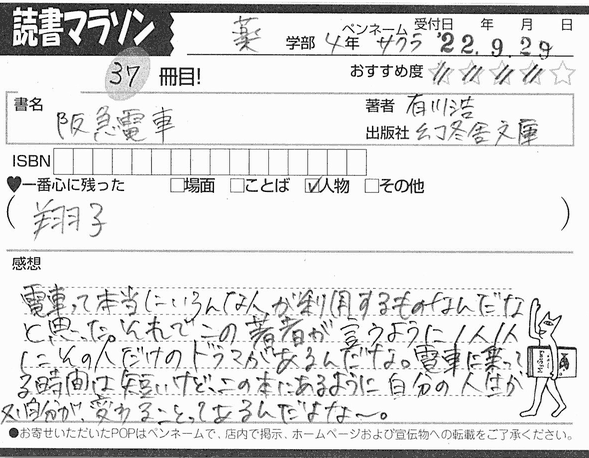 読書マラソン
薬 学部 4年 ペンネーム サクラ 受付日 年 月 日 '22.9.29
37 冊目!
おすすめ度 ☆☆☆☆☆
書名 阪急電車
著者 有川浩
出版社 幻冬舎文庫
ISBN
♥一番心に残った □場面 □ことば ☑人物 □その他
( 翔子 )
感想
電車って本当にいろんな人が利用するものなんだな
と思った。それでこの著者が言うように1人1人
にその人だけのドラマがあるんだな。電車に乗って
る時間は短いけど、この本にあるように自分の人生が
又は自分が、変わることってあるんだよな〜。
●お寄せいただいたPOPはペンネームで、店内で掲示、ホームページおよび宣伝物への転載をご了承ください。